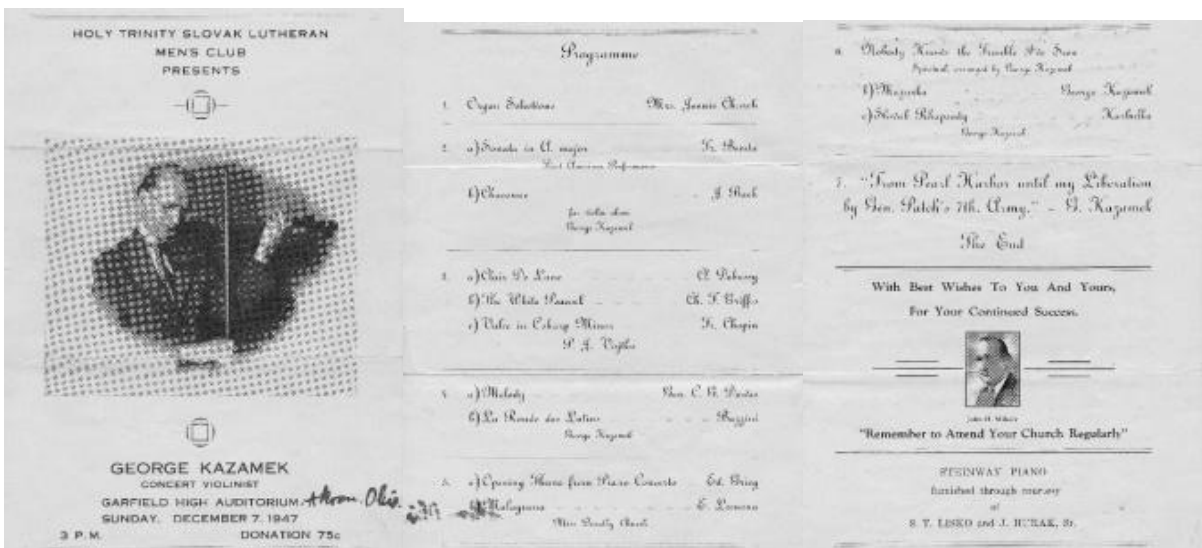 HOLY TRINITY SLOVAK LUTHERAN
MEN'S CLUB
PRESENTS
GEORGE KAZAMEK
CONCERT VIOLINIST
GARFIELD HIGH AUDITORIUM, Akron, Ohio
SUNDAY, DECEMBER 7, 1947
3 P.M. DONATION 75c
Programme
1. Organ Selections Mrs. Jennie
2. a) Sonata in A major Fr. Benda
First American Performance
b) Chaconne J. Bach
for violin alone
George Kazamek
3. a) Clair De Lune A. Debussy
b) The White Peacock Ch. T. Griffes
c) Valse in C sharp Minor Fr. Chopin
P. J.
4. a) Melody Gen. C. G. Dawes
b) La Ronde des Lutins Bazzini
George Kazamek
5. a) Opening Theme from Piano Concerto Ed. Grieg
b) Malaguena E. Lecuona
Miss Dorothy
6. Nobody Knows the Trouble I've Seen
Spiritual, arranged by George Kazamek
b) Mazurka George Kazamek
c) Slovak Rhapsody
George Kazamek
7. "From Pearl Harbor until my Liberation
by Gen. Patch's 7th. Army." - G. Kazamek
The End
With Best Wishes To You And Yours,
For Your Continued Success.
John H.
"Remember to Attend Your Church Regularly"
STEINWAY PIANO
furnished through courtesy
of
S. T. LISKO and J. HURAK, Sr.